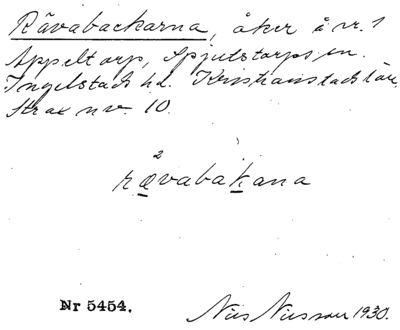 Rävabackarna, åker å nr. 1
Appeltorp, Spjutstorps sn.
Ingelstads hd. Kristianstads län.
Strax nv. 10.
2
rævabakana
Nr 5454.
Nils Nilsson 1930.